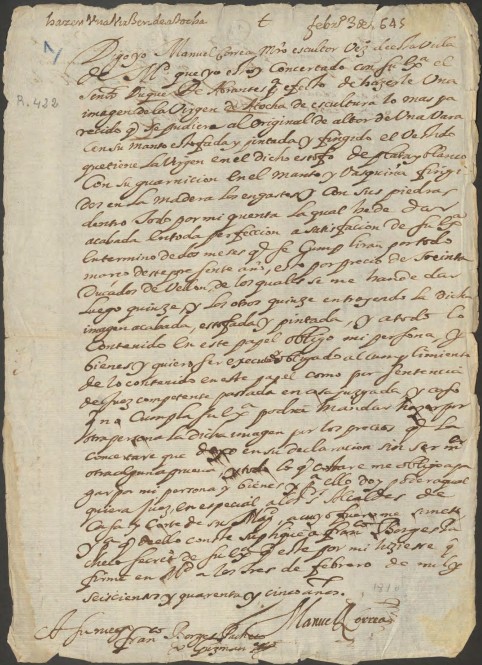 hazer Una Va Ber. de atocha t febro 3 de 645
R. 422
Digo yo Manuel Correa Mro escultor Vezo. de esta Villa
de Md. que yo estoy Concertado con su Exa el
Señor Duque de Abrantes pa efeto de hazerle Una
imagen de la Virgen de Atocha de escultura lo mas pa
recido q se pudiera al Original de altor de Una Vara
Con su manto estofada y pintada y fingido el Vestido
que tiene la Virgen en el dicho estofo de plata y blanco
Con su guarnicion En el manto y Vasquiña fingi
dos en la madera los engastes y Con sus piedras
dentro todo por mi quenta la qual he de dar
acabada En toda perfeccion a satisfacion de su Exa
En termino de dos meses q se Cumpliran por todo
marzo deste presente año, esto por precio de treinta
Ducados de Vellon de los quales se me han de dar
luego quinze, y los otros quinze entregada la Dicha
imagen acabada, estofada y pintada, y a todo lo
Contenido en este papel obligo mi persona y
bienes y quiero ser obligado al cumplimiento
de lo contenido en este papel como por Sentencia
de juez competente passada en cosa juzgada y caso
q no Cumpla su Exa podra mandar hazer por
otra persona la dicha imagen por los precios q la
Concertare que dexo en su declaracion sin ser mr
otra alguna prueva y todo lo q costare me obligo a pa
gar por mi persona y bienes y pa ello doy poder a qual
quiera juez, en especial a los SSes Alcaldes de
Casa y Corte de su Magd a cuyo fuero me someto
y pa q dello conste suplique a Franco Borges Pa
checo Secreto de su Exa q este por mi hiziesse q
firme en Md a los tres de febrero de mil y
seiscientos y quarenta y cinco años.
Manuel Correa
Franco Borges Pacheco
y Guzman